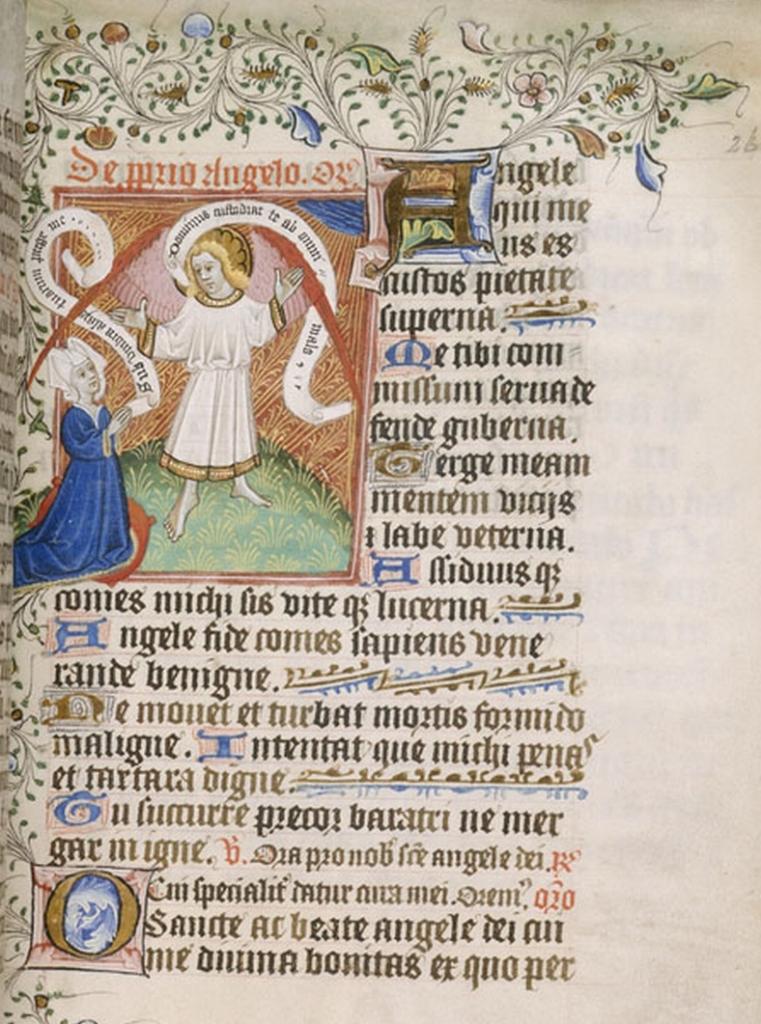 De pprio Angelo. Or
Angele
qui me
us es
custos pietate
superna.
Me tibi com
missum serua de
fende guberna.
Terge meam
mentem vicijs
et labe veterna.
Assiduus q3
comes michi sis vite q3 lucerna.
Angele fide comes sapiens vene
rande benigne.
Me mouet et turbat mortis formido
maligne. Intentat que michi penas
et tartara digne.
Tu succurre precor baratri ne mer
gar in igne. V. Ora pro nob sce angele dei. R
Cui specialit datur cura mei. Orem9. oro
O Sancte ac beate angele dei cui
me diuina bonitas ex quo per
Sub umbra alarum tuarum protege me
Dominus custodiat te ab omni malo
26